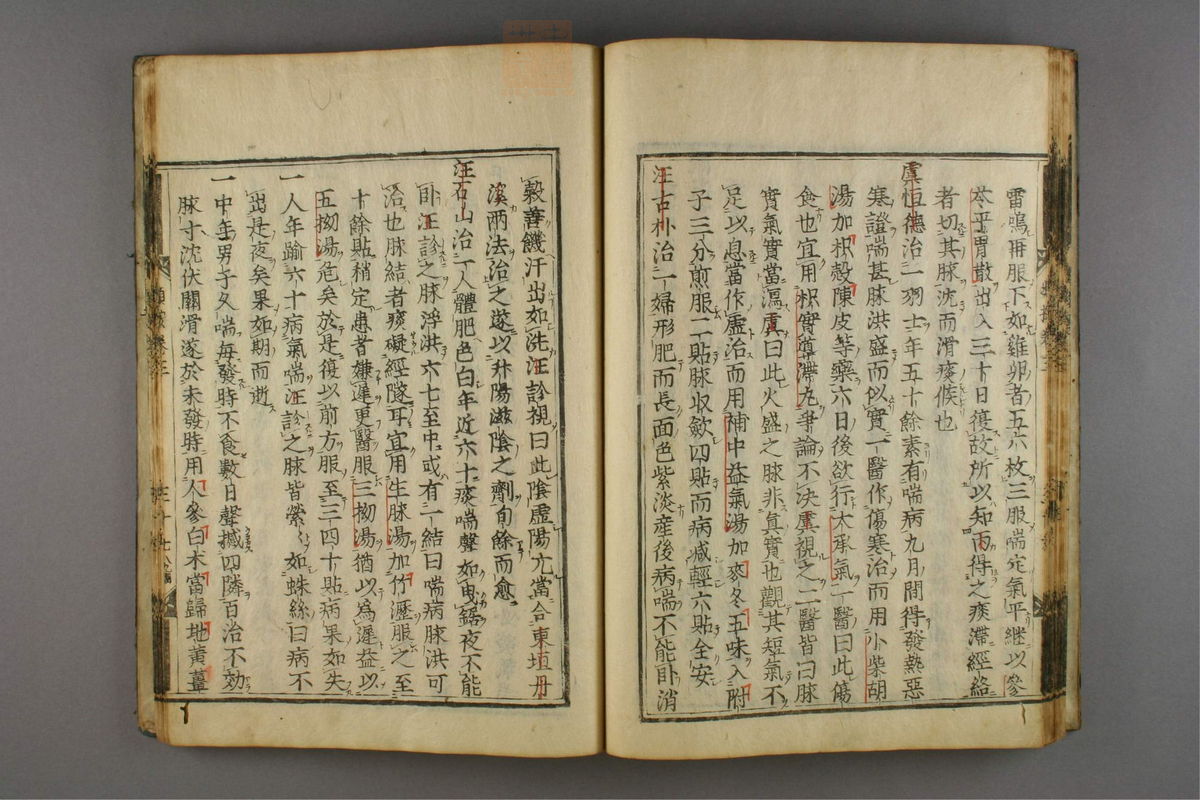 雷鳴再服下如雞卵者五六枚三服喘定氣平繼以參
苓平胃散出入三十日復故所以知丙得之痰滯經絡
者切其脉沈而滑痰候也
虞恒德治一羽士年五十餘素有喘病九月間得發熱惡
寒證喘甚脉洪盛而似實一醫作傷寒治而用小柴胡
湯加枳殼陳皮等藥六日後欲行大承氣一醫曰此傷
食也宜用枳實導滯丸爭論不決虞視之二醫皆曰脉
實氣實當瀉虞曰此火盛之脉非真實也觀其短氣不
足以息當作虛治而用補中益氣湯加麥冬五味入附
子三分煎服二貼脉收斂四貼而病減輕六貼全安
汪石朴治一婦形肥而長面色紫淡産後病喘不能臥消
穀善饑汗出如洗汪診視曰此陰虛陽亢當合東垣丹
溪兩法治之遂以升陽滋陰之劑旬餘而愈
汪石山治一人體肥色白年近六十痰喘聲如曳鋸夜不能
臥汪診之脉浮洪六七至中或有一結曰喘病脉洪可
治也脉結者痰礙經隧耳宜用生脉湯加竹瀝服之至
十餘貼稍定患者嫌遲更醫服三拗湯猶以爲遲益以
五拗湯危矣於是復以前方服至三四十貼病果如失
一人年踰六十病氣喘汪診之脉皆縈〻如蛛絲曰病不
出是夜矣果如期而逝
一中年男子久喘每發時不食數日聲撼四隣百治不効
脉寸沈伏關滑遂於未發時用人參白朮當歸地黄薑